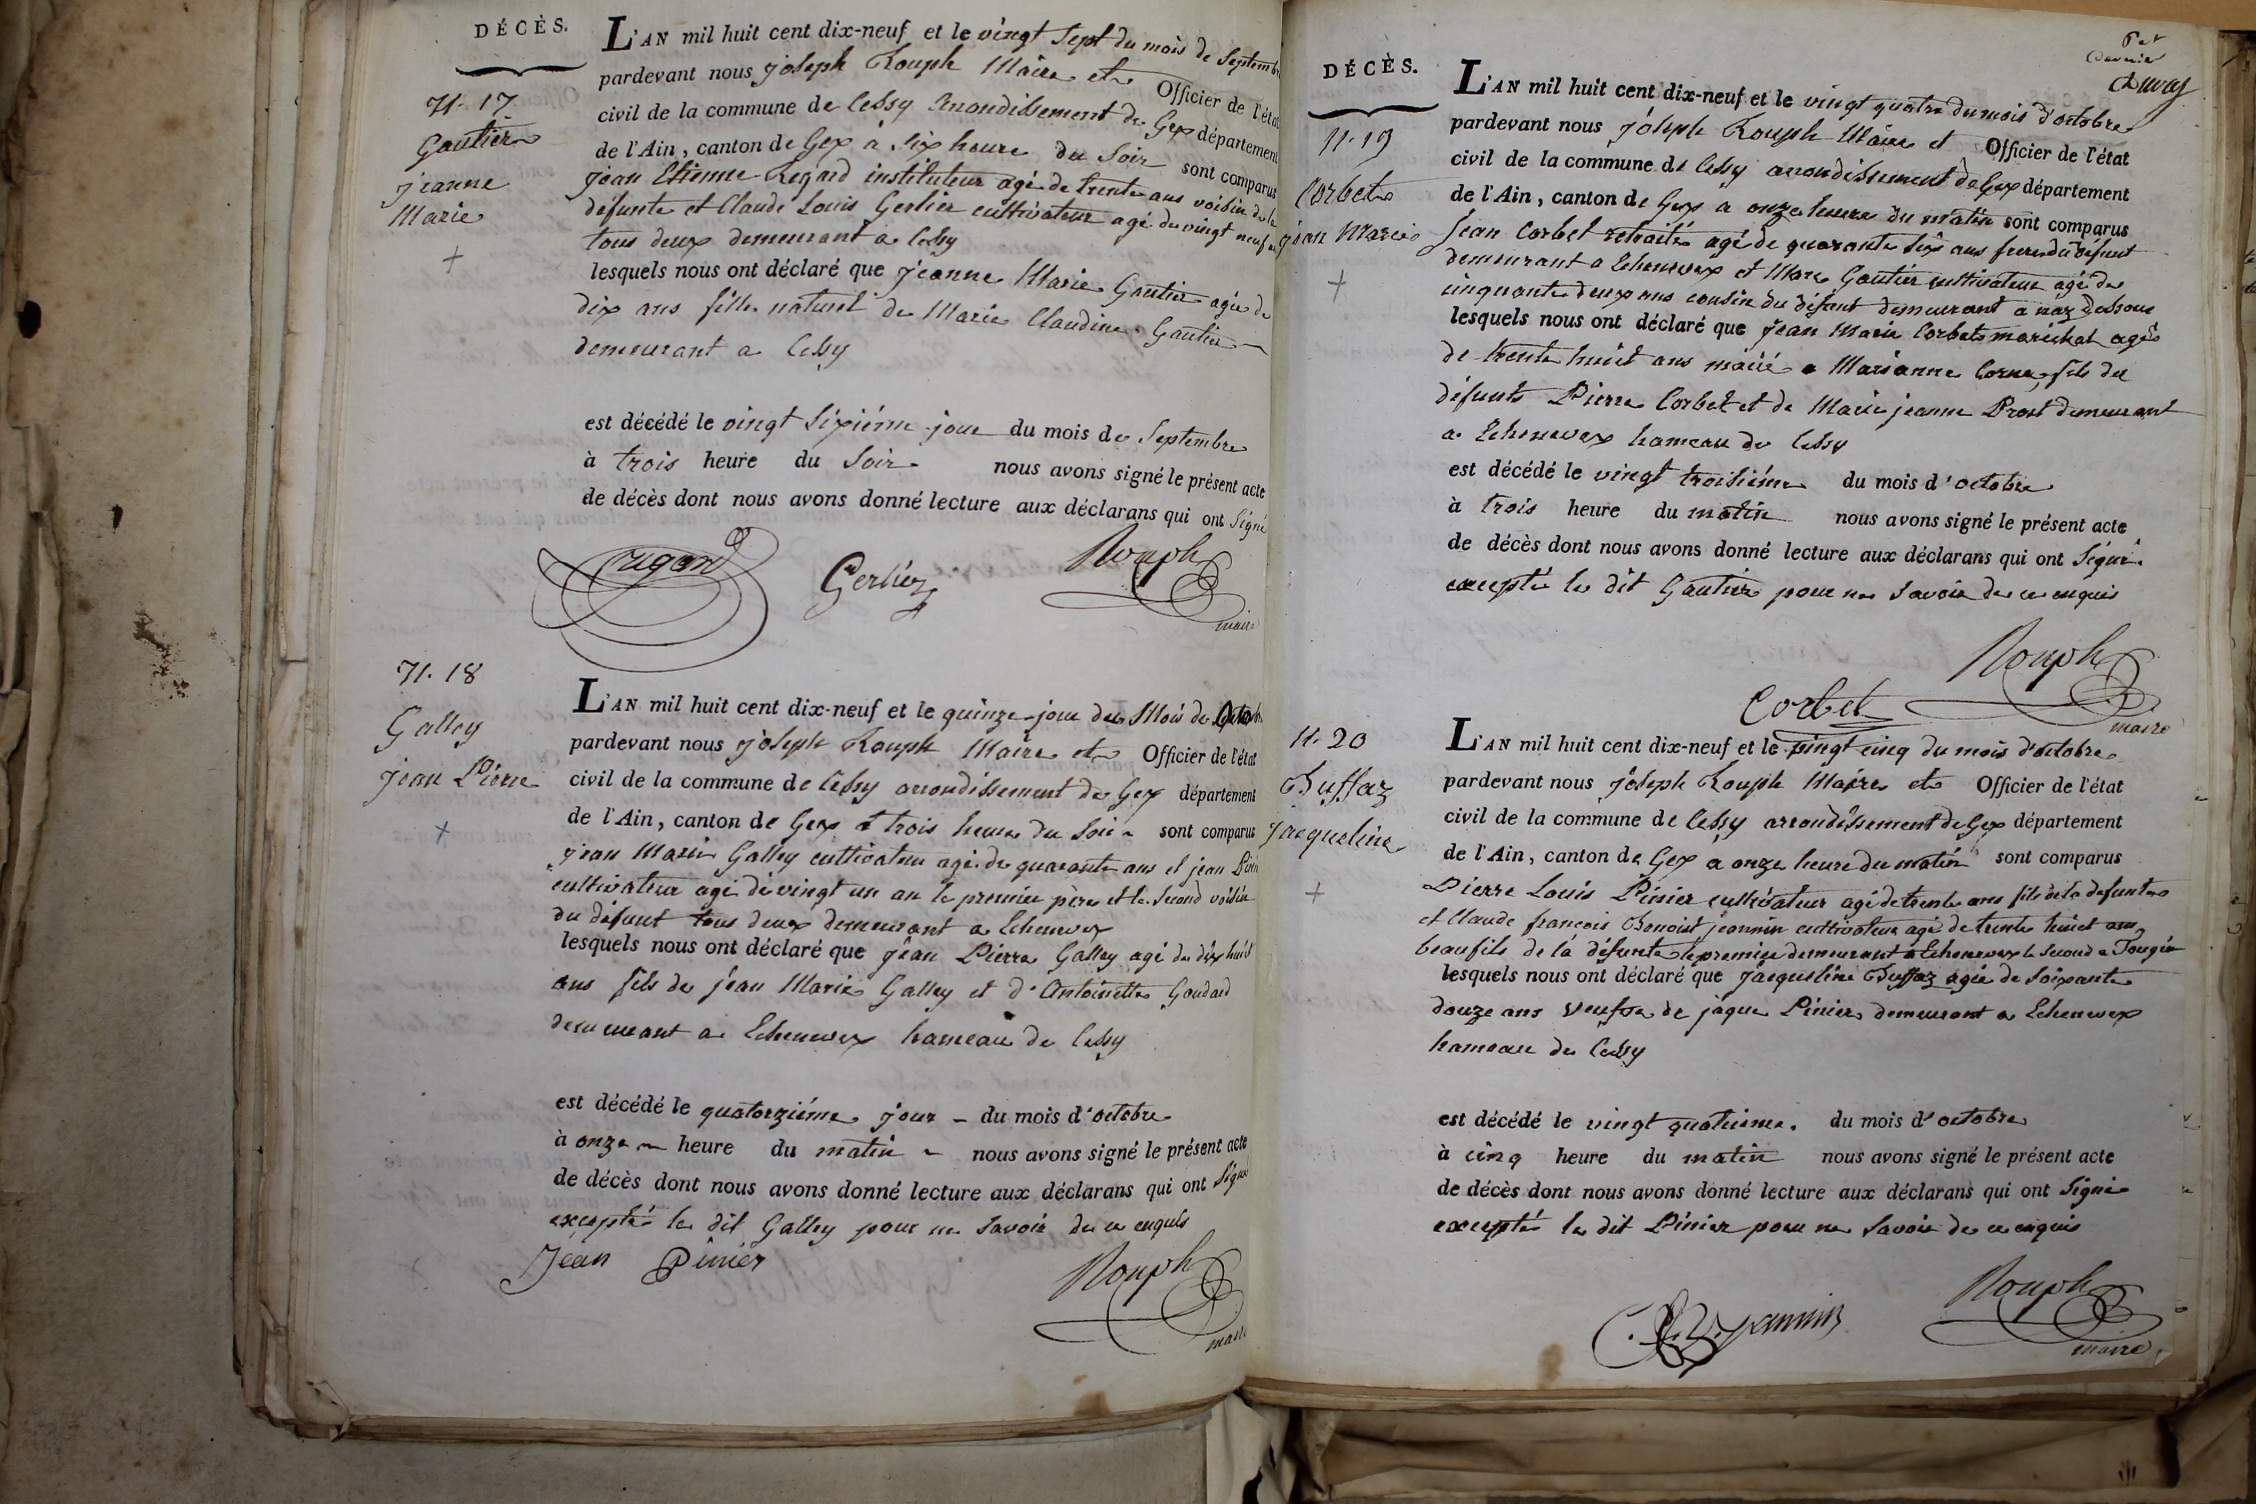 DÉCÈS.
N. 17
Gautier
jeanne
Marie
L'AN mil huit cent dix-neuf et le vingt sept du mois de Septembre
pardevant nous joseph Rouph Maire et Officier de l'état
civil de la commune de Cessy arrondissement de Gex département
de l'Ain, canton de Gex à six heure du Soir sont comparus
jean Etienne Regard instituteur agé de trente ans voisin de la
défunte et Claude Louis Gerlier cultivateur agé de vingt neuf a
tous deux demeurant a Cessy
lesquels nous ont déclaré que jeanne Marie Gautier agée de
dix ans fille naturel de Marie Claudine Gautier
demeurant a Cessy
est décédé le vingt sixiéme jour du mois de Septembre
à trois heure du Soir nous avons signé le présent acte
de décès dont nous avons donné lecture aux déclarans qui ont Signé
Gerlier Rouph
maire
N. 18
Galley
jean Pierre
L'AN mil huit cent dix-neuf et le quinze jour du Mois de
pardevant nous joseph Rouph Maire et Officier de l'état
civil de la commune de Cessy arrondissement de Gex département
de l'Ain, canton de Gex à trois heure du Soir sont comparus
jean Marie Galley cultivateur agé de quarante ans et jean Pinier
cultivateur agé de vingt un an le premier père et le second voisin
du défunt tous deux demeurant a Echenevex
lesquels nous ont déclaré que jean Pierre Galley agé de dix huit
ans fils de jean Marie Galley et d'Antoinette Goudard
demeurant a Echenevex hameau de Cessy
est décédé le quatorziéme jour du mois d'octobre
à onze heure du matin nous avons signé le présent acte
de décès dont nous avons donné lecture aux déclarans qui ont Signé
excepté le dit Galley pour ne savoir de ce enquis
Jean Pinier
Rouph
maire
6 et
dernier
DÉCÈS.
N. 19
Corbet
jean Marie
L'AN mil huit cent dix-neuf et le vingt quatre du mois d'octobre
pardevant nous joseph Rouph Maire et Officier de l'état
civil de la commune de Cessy arrondissement de Gex département
de l'Ain, canton de Gex a onze heure du matin sont comparus
jean Corbet retraité agé de quarante six ans frere du défunt
demeurant a Echenevex et Marc Gautier cultivateur agé de
cinquante deux ans cousin du défunt demeurant a naz dessous
lesquels nous ont déclaré que jean Marie Corbet maréchal agé
de trente huit ans marié a Marianne Corna, fils de
défunts Pierre Corbet et de Marie jeanne Prost demeurant
a Echenevex hameau de Cessy
est décédé le vingt troisiéme du mois d'octobre
à trois heure du matin nous avons signé le présent acte
de décès dont nous avons donné lecture aux déclarans qui ont Signé
excepté le dit Gautier pour ne savoir de ce enquis
Rouph
Corbet
maire
N. 20
Buffaz
Jacqueline
L'AN mil huit cent dix-neuf et le vingt cinq du mois d'octobre
pardevant nous joseph Rouph Maire et Officier de l'état
civil de la commune de Cessy arrondissement de Gex département
de l'Ain, canton de Gex a onze heure du matin sont comparus
Pierre Louis Pinier cultivateur agé de trente ans fils de la defunte
et Claude francois Benoist jeannin cultivateur agé de trente huit ans
beaufils de la défunte le premier demeurant a Echenevex le second a Tougin
lesquels nous ont déclaré que jacqueline Buffaz agée de soixante
douze ans veufve de jaque Pinier demeurant a Echenevex
hameau de Cessy
est décédé le vingt quatrieme. du mois d'octobre
à cinq heure du matin nous avons signé le présent acte
de décès dont nous avons donné lecture aux déclarans qui ont Signé
excepté le dit Pinier pour ne savoir de ce enquis
Rouph
maire